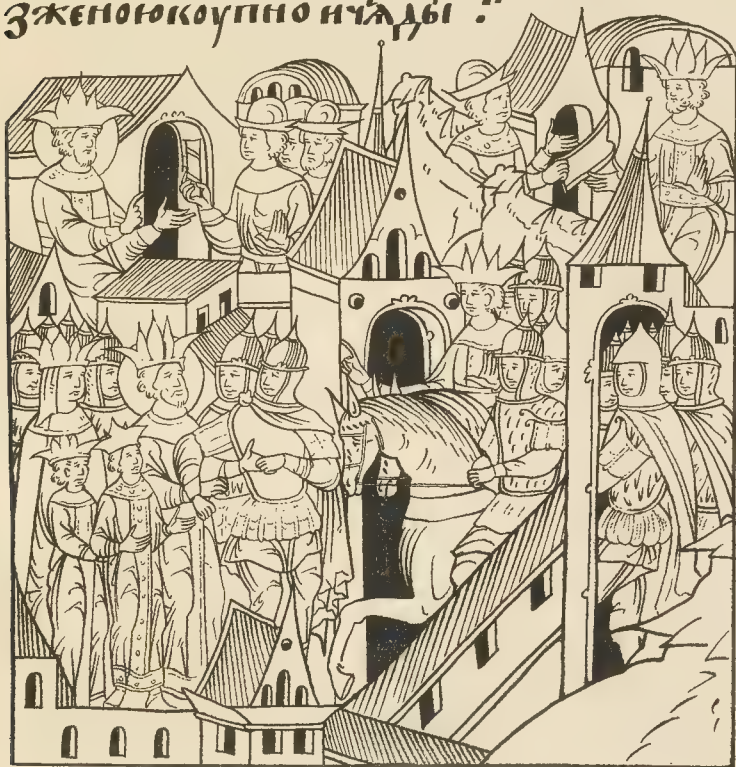 зженоюкоупно ичѧды :